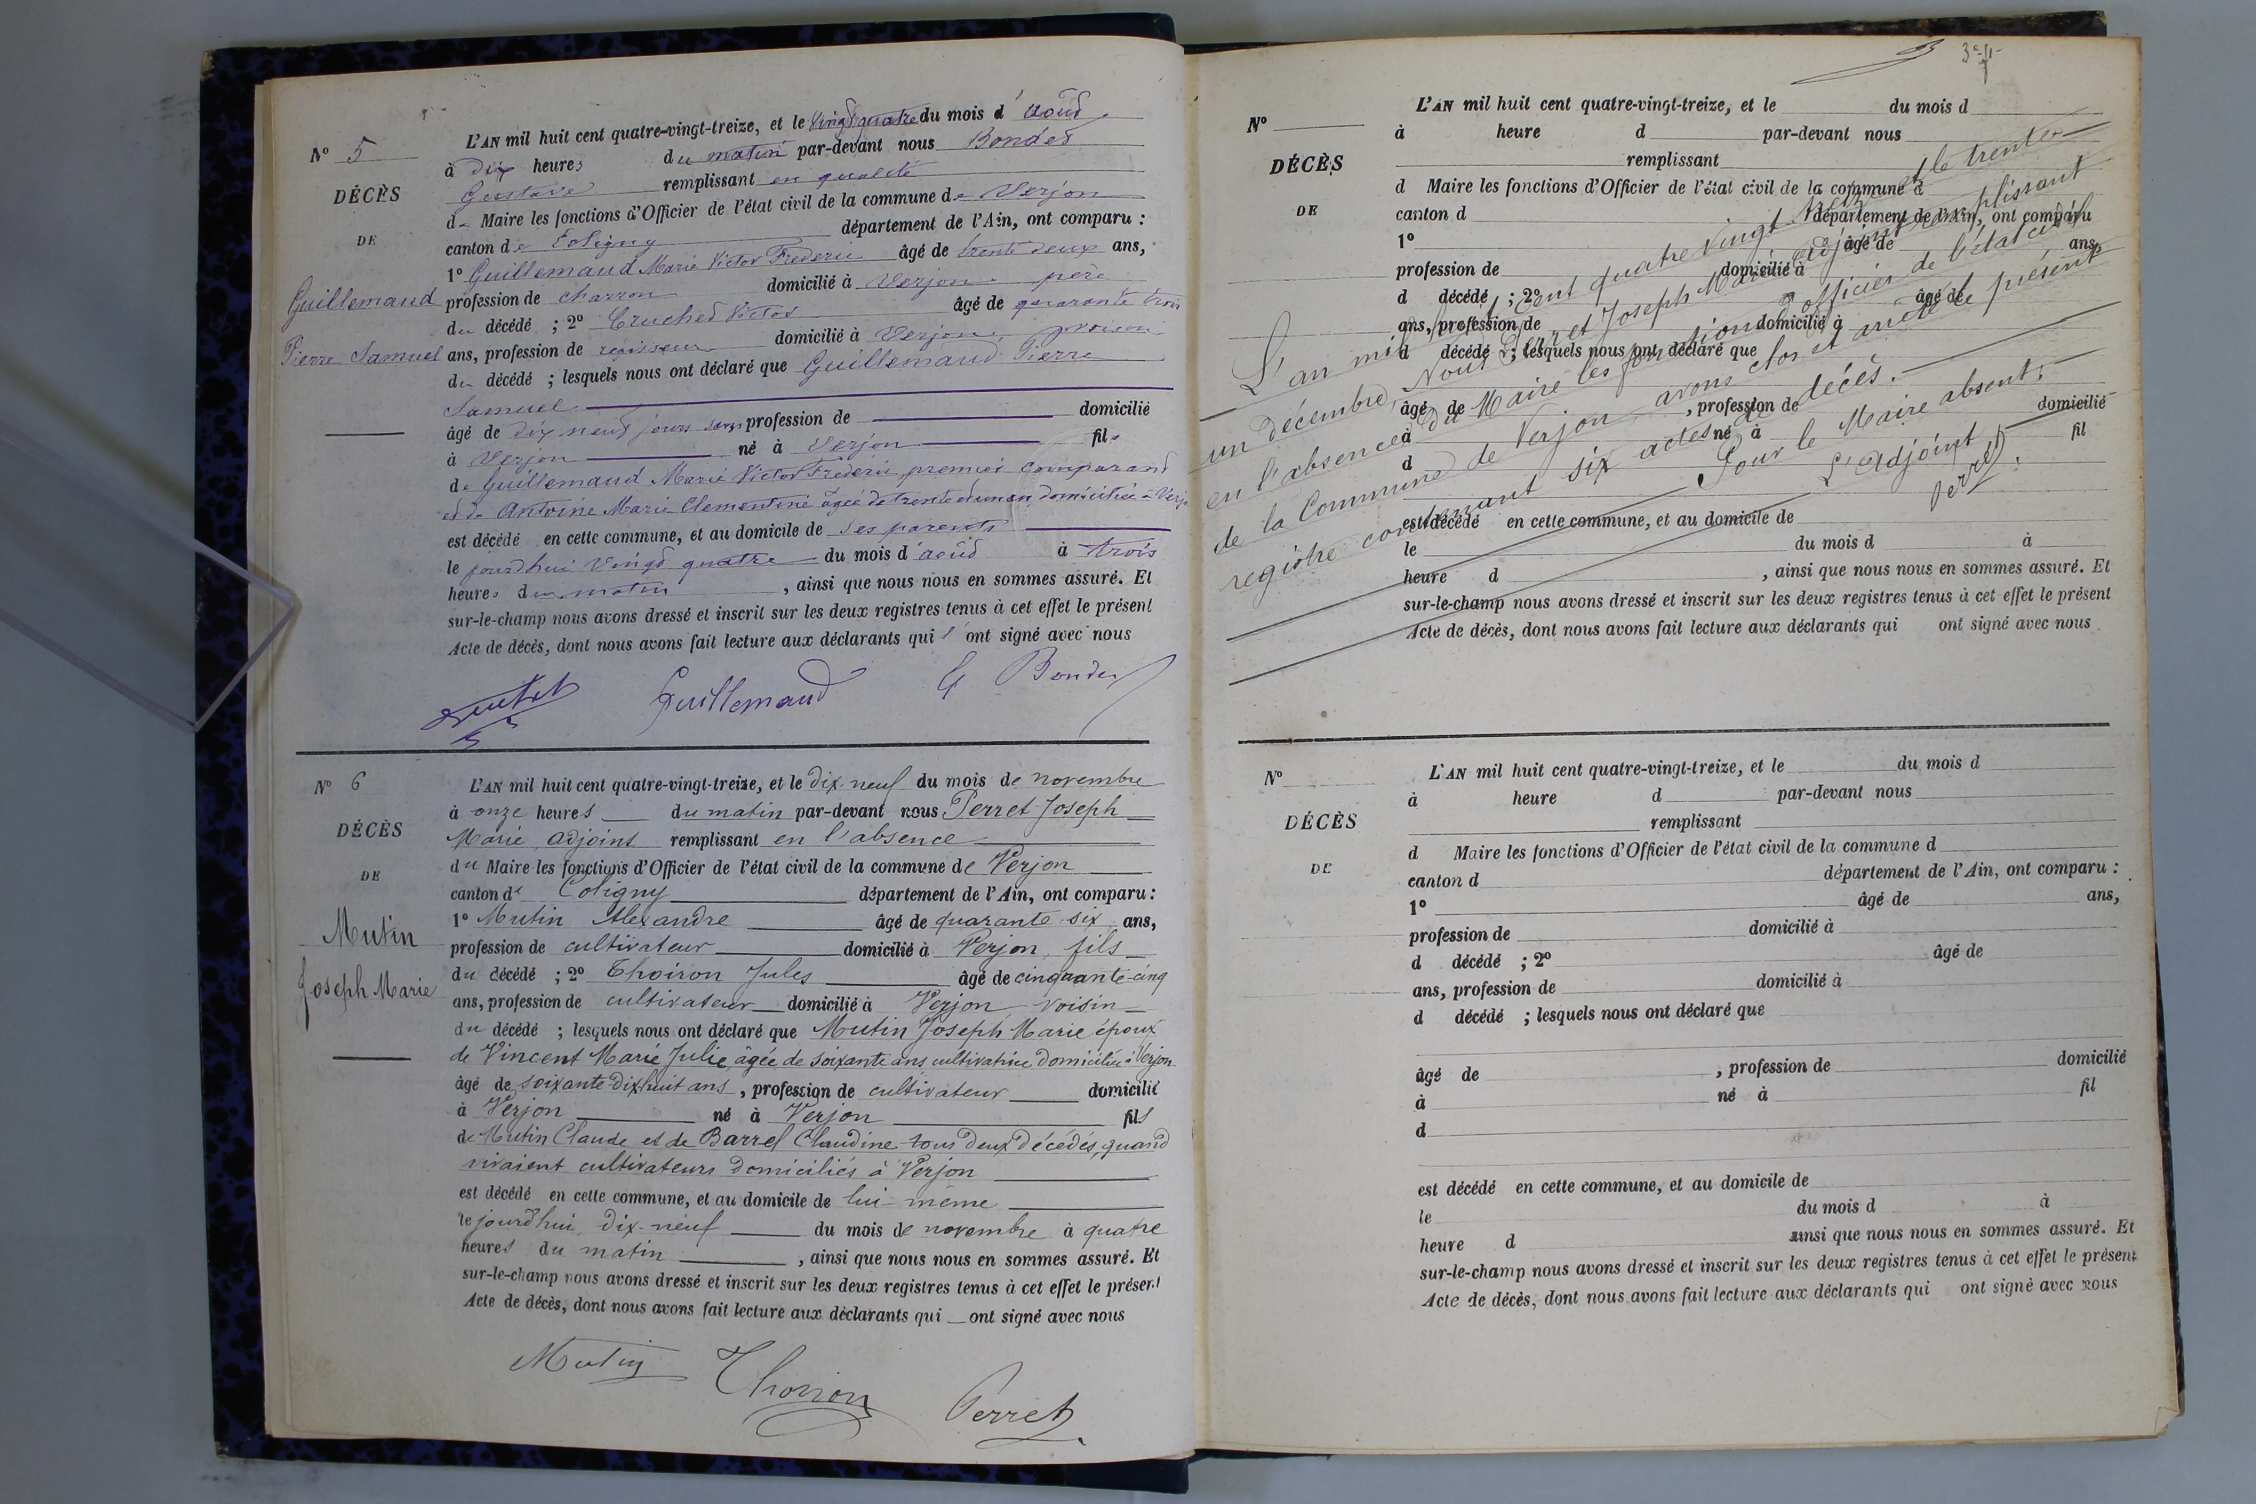 N° 5
DÉCÈS
DE
Guillemaud
Pierre Samuel
L'AN mil huit cent quatre-vingt-treize, et le vingt quatre du mois d'août
à dix heures du matin par-devant nous Bondet
Gustave remplissant en qualité
de Maire les fonctions d'Officier de l'état civil de la commune de Verjon
canton de Coligny département de l'Ain, ont comparu :
1° Guillemaud Marie Victor Frederic âgé de trente deux ans,
profession de charron domicilié à Verjon père
du décédé ; 2° Cruchet Victor âgé de quarante trois
ans, profession de régisseur domicilié à Verjon, voisin
du décédé ; lesquels nous ont déclaré que Guillemaud Pierre
Samuel
âgé de dix neuf jours sans profession de domicilié
à Verjon né à Verjon fils
de Guillemaud Marie Victor Fréderic, premier comparant
et de Antoine Marie Clementine agée de trente et un an, domiciliée à Verjon
est décédé en cette commune, et au domicile de ses parents
le jourd'hui vingt quatre du mois d'août à trois
heures du matin , ainsi que nous nous en sommes assuré. Et
sur-le-champ nous avons dressé et inscrit sur les deux registres tenus à cet effet le présent
Acte de décès, dont nous avons fait lecture aux déclarants qui l'ont signé avec nous
Guillemaud G Bondet
N° 6
DÉCÈS
DE
Mutin
Joseph Marie
L'AN mil huit cent quatre-vingt-treize, et le dix-neuf du mois de novembre
à onze heures du matin par-devant nous Perret Joseph
Marie, adjoint remplissant en l'absence
du Maire les fonctions d'Officier de l'état civil de la commune de Verjon
canton de Coligny département de l'Ain, ont comparu :
1° Mutin Alexandre âgé de quarante six ans,
profession de cultivateur domicilié à Verjon, fils
du décédé ; 2° Thoiron Jules âgé de cinquante-cinq
ans, profession de cultivateur domicilié à Verjon voisin
du décédé ; lesquels nous ont déclaré que Mutin Joseph Marie époux
de Vincent Marie Julie, âgée de soixante ans cultivatrice domiciliée à Verjon
âgé de soixante dix huit ans, profession de cultivateur domicilié
à Verjon né à Verjon fils
de Mutin Claude et de Barrel Claudine tous deux décédés, quand
vivaient cultivateurs domiciliés à Verjon
est décédé en cette commune, et au domicile de lui-même
le jourd'hui dix-neuf du mois de novembre à quatre
heures du matin , ainsi que nous nous en sommes assuré. Et
sur-le-champ nous avons dressé et inscrit sur les deux registres tenus à cet effet le présent
Acte de décès, dont nous avons fait lecture aux déclarants qui ont signé avec nous
Mutin Thoiron Perret
N°
DÉCÈS
DE
L'AN mil huit cent quatre-vingt-treize, et le du mois d
à heure d par-devant nous
remplissant
d Maire les fonctions d'Officier de l'état civil de la commune d
canton d département de l'Ain, ont comparu
1° âgé de ans,
profession de domicilié à
d décédé ; 2° âgé de
ans, profession de domicilié à
d décédé ; lesquels nous ont déclaré que
âgé de , profession de domicilié
à né à fil
d
est décédé en cette commune, et au domicile de
le du mois d à
heure d , ainsi que nous nous en sommes assuré. Et
sur-le-champ nous avons dressé et inscrit sur les deux registres tenus à cet effet le présent
Acte de décès, dont nous avons fait lecture aux déclarants qui ont signé avec nous
L'an mil huit cent quatre vingt treize et le trente
un décembre, Nous Perret Joseph Marie adjoint remplissant
en l'absence du Maire les fonctions d'officier de l'état civil
de la Commune de Verjon, avons clos et arrêté le présent
registre contenant six actes de décès.
Pour le Maire absent:
L'adjoint
Perret
N°
DÉCÈS
DE
L'AN mil huit cent quatre-vingt-treize, et le du mois d
à heure d par-devant nous
remplissant
d Maire les fonctions d'Officier de l'état civil de la commune d
canton d département de l'Ain, ont comparu :
1° âgé de ans,
profession de domicilié à
d décédé ; 2° âgé de
ans, profession de domicilié à
d décédé ; lesquels nous ont déclaré que
âgé de , profession de domicilié
à né à fil
d
est décédé en cette commune, et au domicile de
le du mois d à
heure d ainsi que nous nous en sommes assuré. Et
sur-le-champ nous avons dressé et inscrit sur les deux registres tenus à cet effet le présent
Acte de décès, dont nous avons fait lecture aux déclarants qui ont signé avec nous